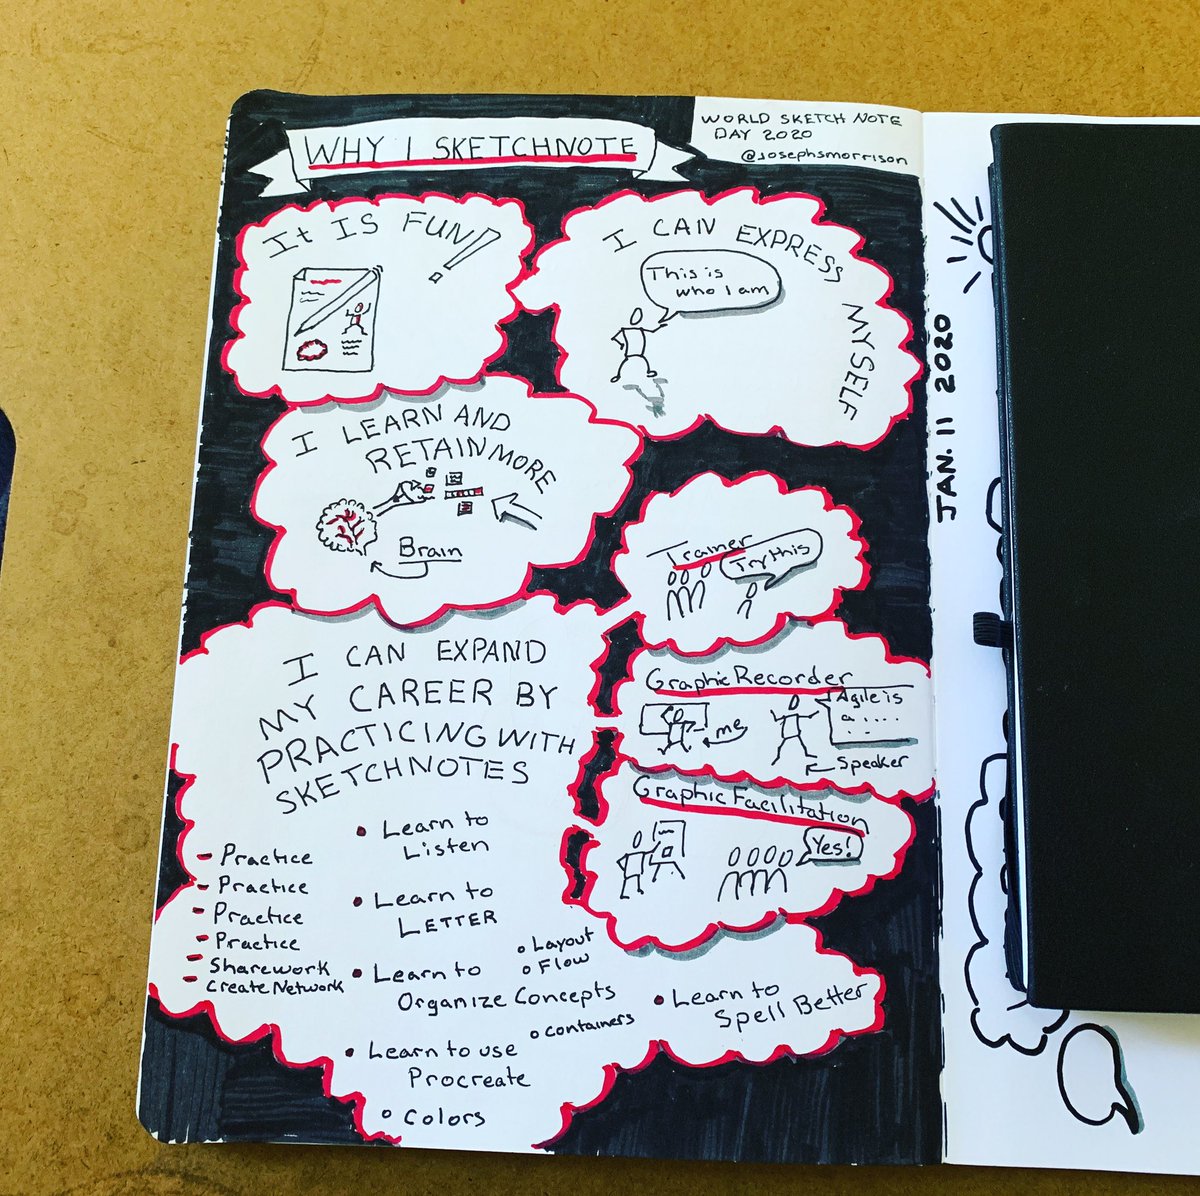 WHY I SKETCHNOTE
WORLD SKETCH NOTE
DAY 2020
@josephsmorrison
It IS FUN!
I CAN EXPRESS MYSELF
This is
who I am
I LEARN AND
RETAIN MORE
Brain
Trainer
Try this
Graphic Recorder
me
Agile is
a ....
Speaker
Graphic Facilitation
Yes!
I CAN EXPAND
MY CAREER BY
PRACTICING WITH
SKETCHNOTES
- Practice
- Practice
- Practice
- Practice
- Sharework
- Create Network
• Learn to
Listen
• Learn to
LETTER
• Learn to
Organize Concepts
o Layout
o Flow
o containers
• Learn to use
Procreate
o Colors
• Learn to
Spell Better
JAN. 11 2020